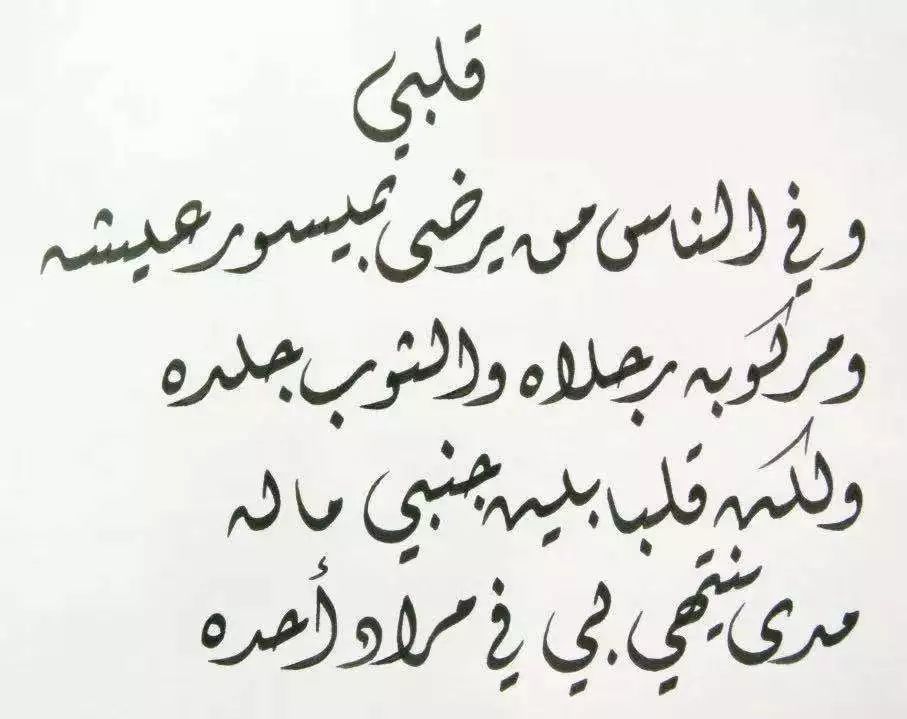 قلبي
وفي الناس من يرضى بميسور عيشه
ومركوبه رجلاه والثوب جلده
ولكن قلبا بين جنبي ماله
مدى ينتهي بي في مراد أحده